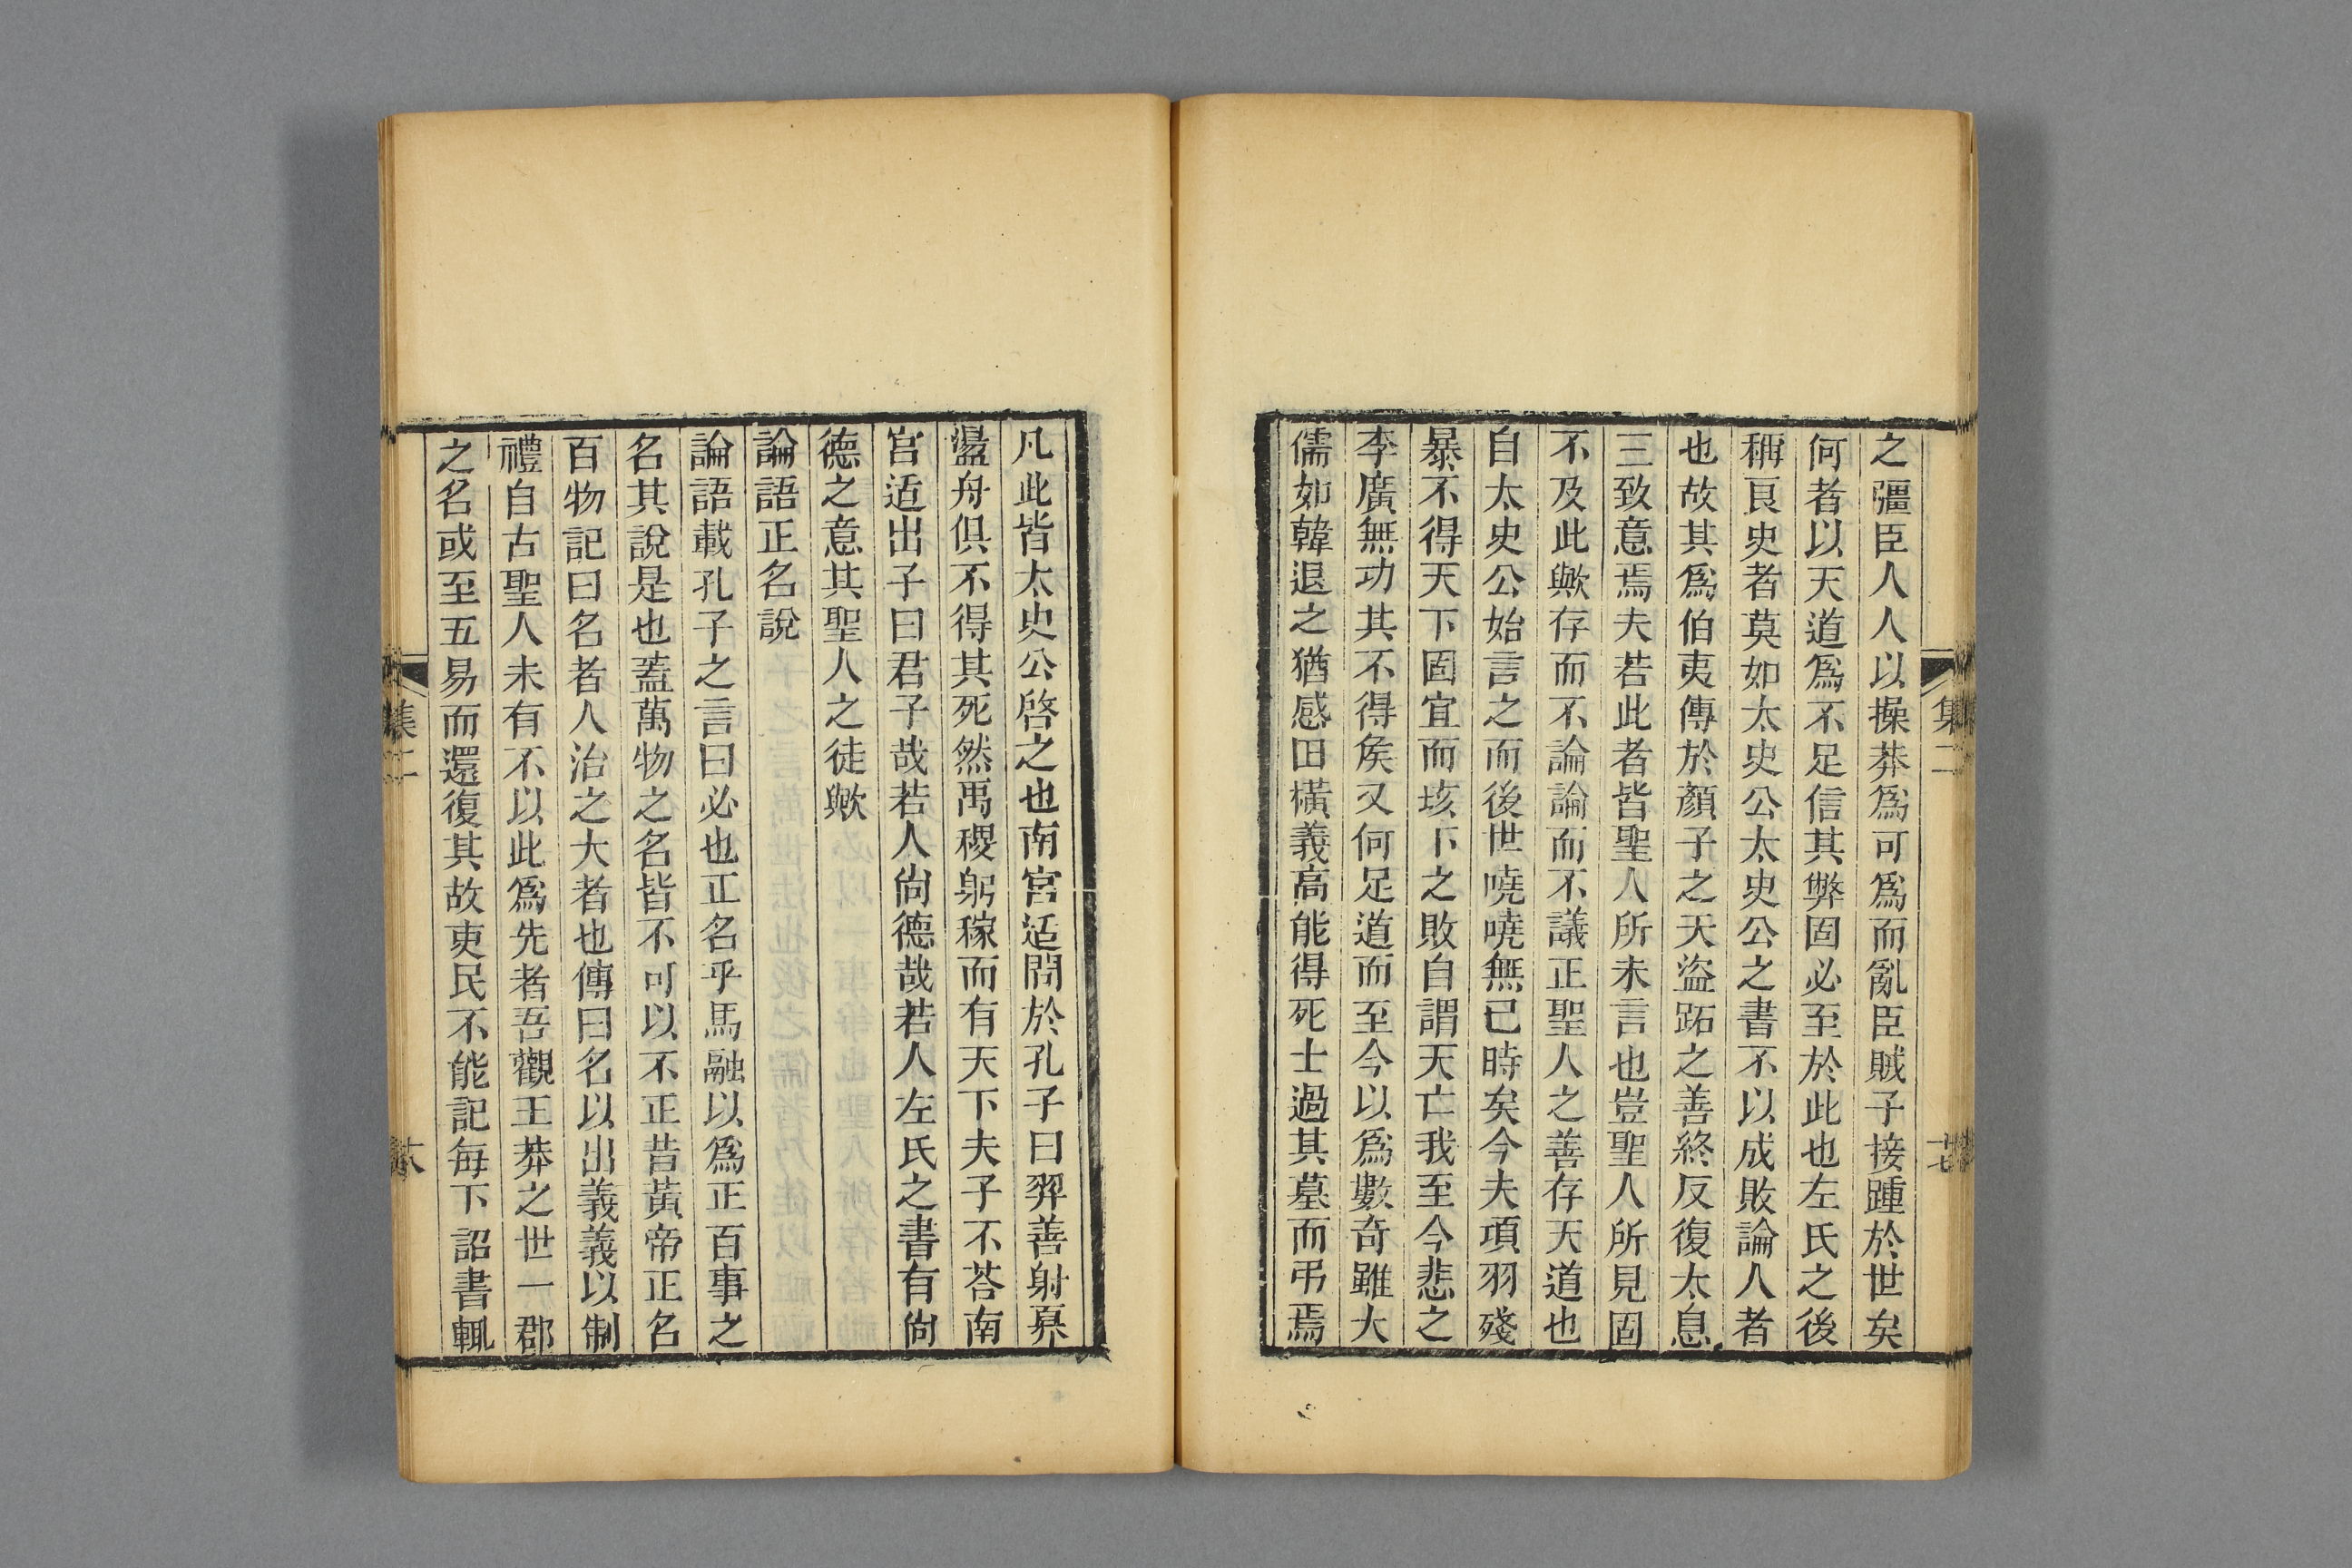 之彊臣人人以操莽爲可爲而亂臣賊子接踵於世矣
何者以天道爲不足信其弊固必至於此也左氏之後
稱良史者莫如太史公太史公之書不以成敗論人者
也故其爲伯夷傳於顏子之夭盜跖之善終反復太息
三致意焉夫若此者皆聖人所未言也豈聖人所見固
不及此歟存而不論論而不議正聖人之善存天道也
自太史公始言之而後世嘵嘵無已時矣今夫項羽殘
暴不得天下固宜而垓下之敗自謂天亡我至今悲之
李廣無功其不得矦又何足道而至今以爲數奇雖大
儒如韓退之猶感田橫義高能得死士過其墓而弔焉
集二
十七
凡此皆太史公啓之也南宮适問於孔子曰羿善射奡
盪舟俱不得其死然禹稷躬稼而有天下夫子不荅南
宮适出子曰君子哉若人尙德哉若人左氏之書有尙
德之意其聖人之徒歟
論語正名說
論語載孔子之言曰必也正名乎馬融以爲正百事之
名其說是也蓋萬物之名皆不可以不正昔黃帝正名
百物記曰名者人治之大者也傳曰名以出義義以制
禮自古聖人未有不以此爲先者吾觀王莽之世一郡
之名或至五易而還復其故吏民不能記每下詔書輒
集二